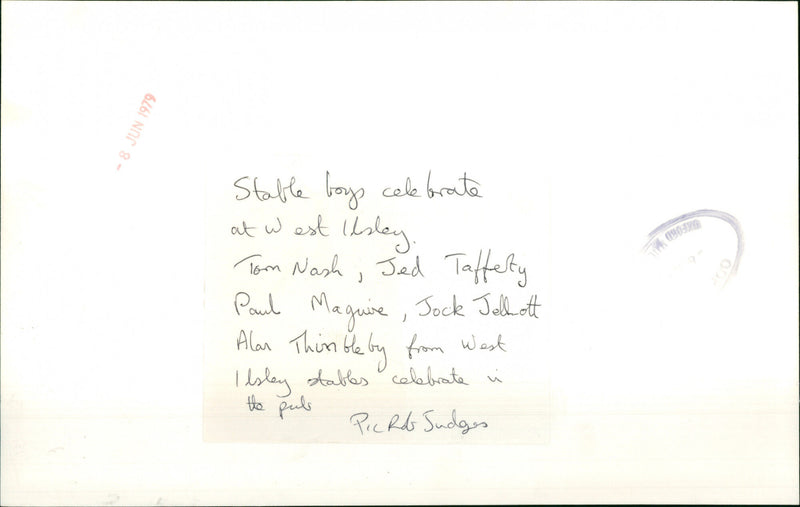 - 8 JUN 1979
Stable boys celebrate
at West Ilsley.
Tom Nash, Jed Tafferty
Paul Maguire, Jock Jellott
Alan Thimbleby from West
Ilsley stables celebrate in
the pub
Pic Rob Judges
OXFORD